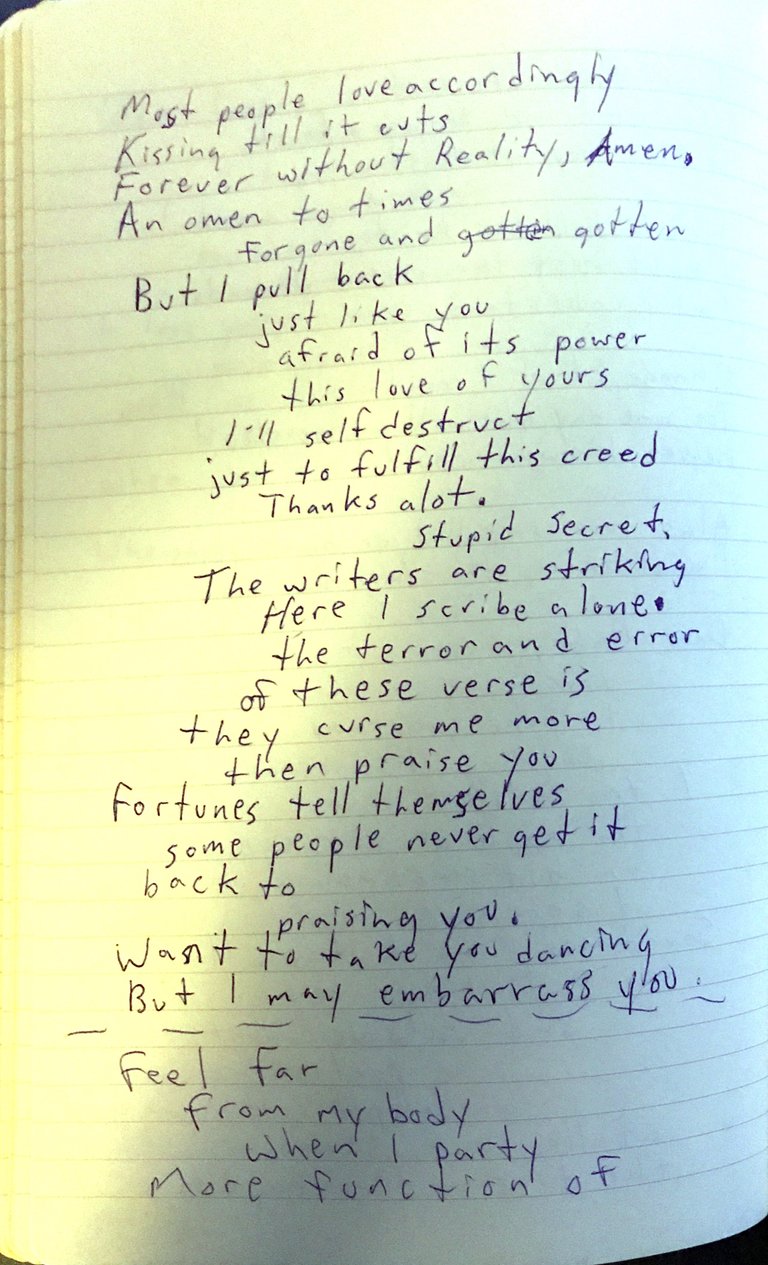 Most people love accordingly
Kissing till it cuts
Forever without Reality, Amen.
An omen to times
forgone and gotten gotten
But I pull back
just like you
afraid of its power
this love of yours
I'll self destruct
just to fulfill this creed
Thanks alot.
Stupid Secret.
The writers are striking
Here I scribe alone.
the terror and error
of these verse is
they curse me more
then praise you
Fortunes tell themselves
some people never get it
back to
praising you.
Want to take you dancing
But I may embarrass you.
Feel far
from my body
when I party
More function of